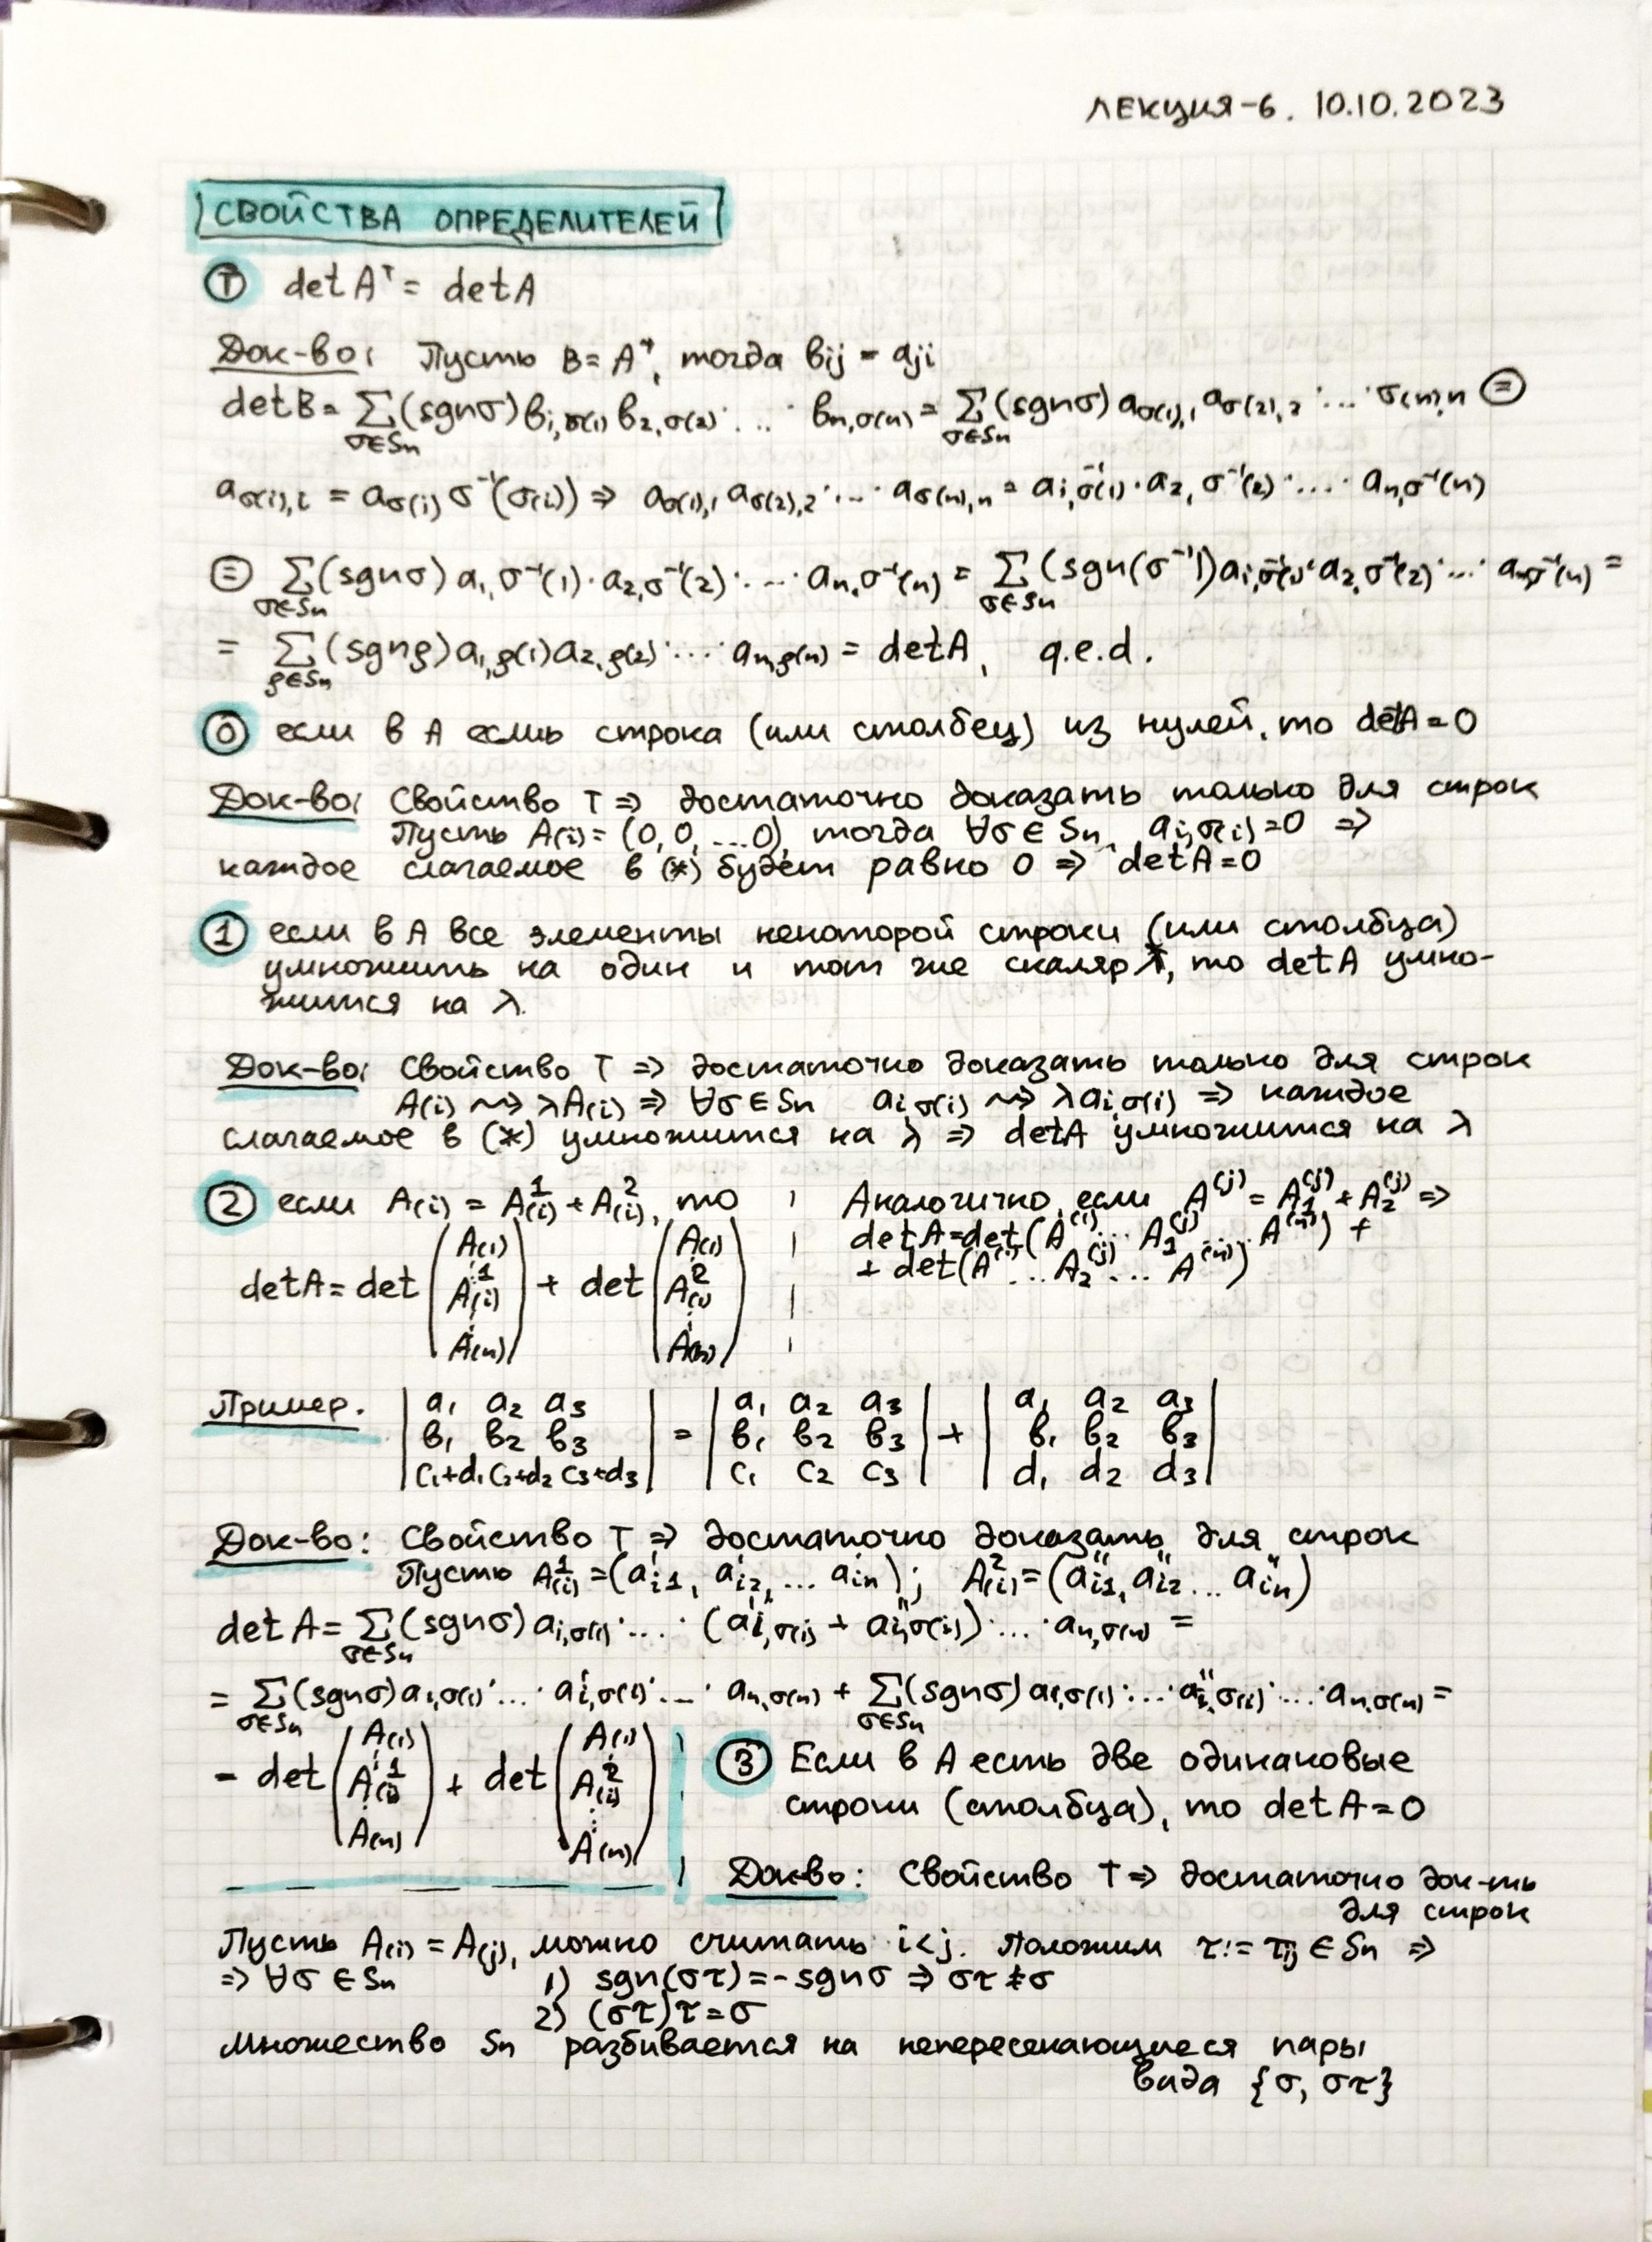 ЛЕКЦИЯ-6. 10.10.2023
СВОЙСТВА ОПРЕДЕЛИТЕЛЕЙ
Ⓣ det Aᵀ = det A
Док-во: Пусть B = Aᵀ, тогда bij = aji
det B = ∑_{σ∈Sn} (sgn σ) b₁,σ(1) b₂,σ(2) · ... · bn,σ(n) = ∑_{σ∈Sn} (sgn σ) aσ(1),1 aσ(2),2 · ... · σ(n),n ⊜
aσ(i),i = aσ(i) σ⁻¹(σ(i)) ⇒ aσ(1),1 aσ(2),2 · ... · aσ(n),n = a₁,σ⁻¹(1) · a₂,σ⁻¹(2) · ... · an,σ⁻¹(n)
⊜ ∑_{σ∈Sn} (sgn σ) a₁,σ⁻¹(1) · a₂,σ⁻¹(2) · ... · an,σ⁻¹(n) = ∑_{σ∈Sn} (sgn(σ⁻¹)) a₁,σ⁻¹(1) · a₂,σ⁻¹(2) · ... · an,σ⁻¹(n) =
= ∑_{ρ∈Sn} (sgn ρ) a₁,ρ(1) a₂,ρ(2) · ... · an,ρ(n) = det A, q.e.d.
⓪ если в A есть строка (или столбец) из нулей, то det A = 0
Док-во: Свойство T ⇒ достаточно доказать только для строк
Пусть A(i) = (0, 0, ...0), тогда ∀σ ∈ Sn, ai,σ(i) = 0 ⇒
каждое слагаемое в (*) будет равно 0 ⇒ det A = 0
① если в A все элементы некоторой строки (или столбца)
умножить на один и тот же скаляр λ, то det A умно-
жится на λ.
Док-во: Свойство T ⇒ достаточно доказать только для строк
A(i) ⇝ λA(i) ⇒ ∀σ ∈ Sn ai,σ(i) ⇝ λai,σ(i) ⇒ каждое
слагаемое в (*) умножится на λ ⇒ det A умножится на λ
② если A(i) = A¹(i) + A²(i), то
det A = det (A(1) ⋮ A¹(i) ⋮ A(n)) + det (A(1) ⋮ A²(i) ⋮ A(n))
Аналогично, если A⁽ʲ⁾ = A₁⁽ʲ⁾ + A₂⁽ʲ⁾ ⇒
det A = det(A⁽¹⁾ ... A₁⁽ʲ⁾ ... A⁽ⁿ⁾) +
+ det(A⁽¹⁾ ... A₂⁽ʲ⁾ ... A⁽ⁿ⁾)
Пример. | a₁ a₂ a₃ | | a₁ a₂ a₃ | | a₁ a₂ a₃ |
| b₁ b₂ b₃ | = | b₁ b₂ b₃ | + | b₁ b₂ b₃ |
| c₁+d₁ c₂+d₂ c₃+d₃ | | c₁ c₂ c₃ | | d₁ d₂ d₃ |
Док-во: Свойство T ⇒ достаточно доказать для строк
Пусть A¹(i) = (a'i1, a'i2, ... a'in); A²(i) = (a''i1, a''i2 ... a''in)
det A = ∑_{σ∈Sn} (sgn σ) a₁,σ(1) · ... · (a'i,σ(i) + a''i,σ(i)) · ... · an,σ(n) =
= ∑_{σ∈Sn} (sgn σ) a₁,σ(1) · ... · a'i,σ(i) · ... · an,σ(n) + ∑_{σ∈Sn} (sgn σ) a₁,σ(1) · ... · a''i,σ(i) · ... · an,σ(n) =
= det (A(1) ⋮ A¹(i) ⋮ A(n)) + det (A(1) ⋮ A²(i) ⋮ A(n))
③ Если в A есть две одинаковые
строки (столбца), то det A = 0
Док-во: Свойство T ⇒ достаточно док-ть
для строк
Пусть A(i) = A(j), можно считать i < j. Положим τ := τij ∈ Sn ⇒
⇒ ∀σ ∈ Sn 1) sgn(στ) = - sgn σ ⇒ στ ≠ σ
2) (στ)τ = σ
Множество Sn разбивается на непересекающиеся пары
вида {σ, στ}